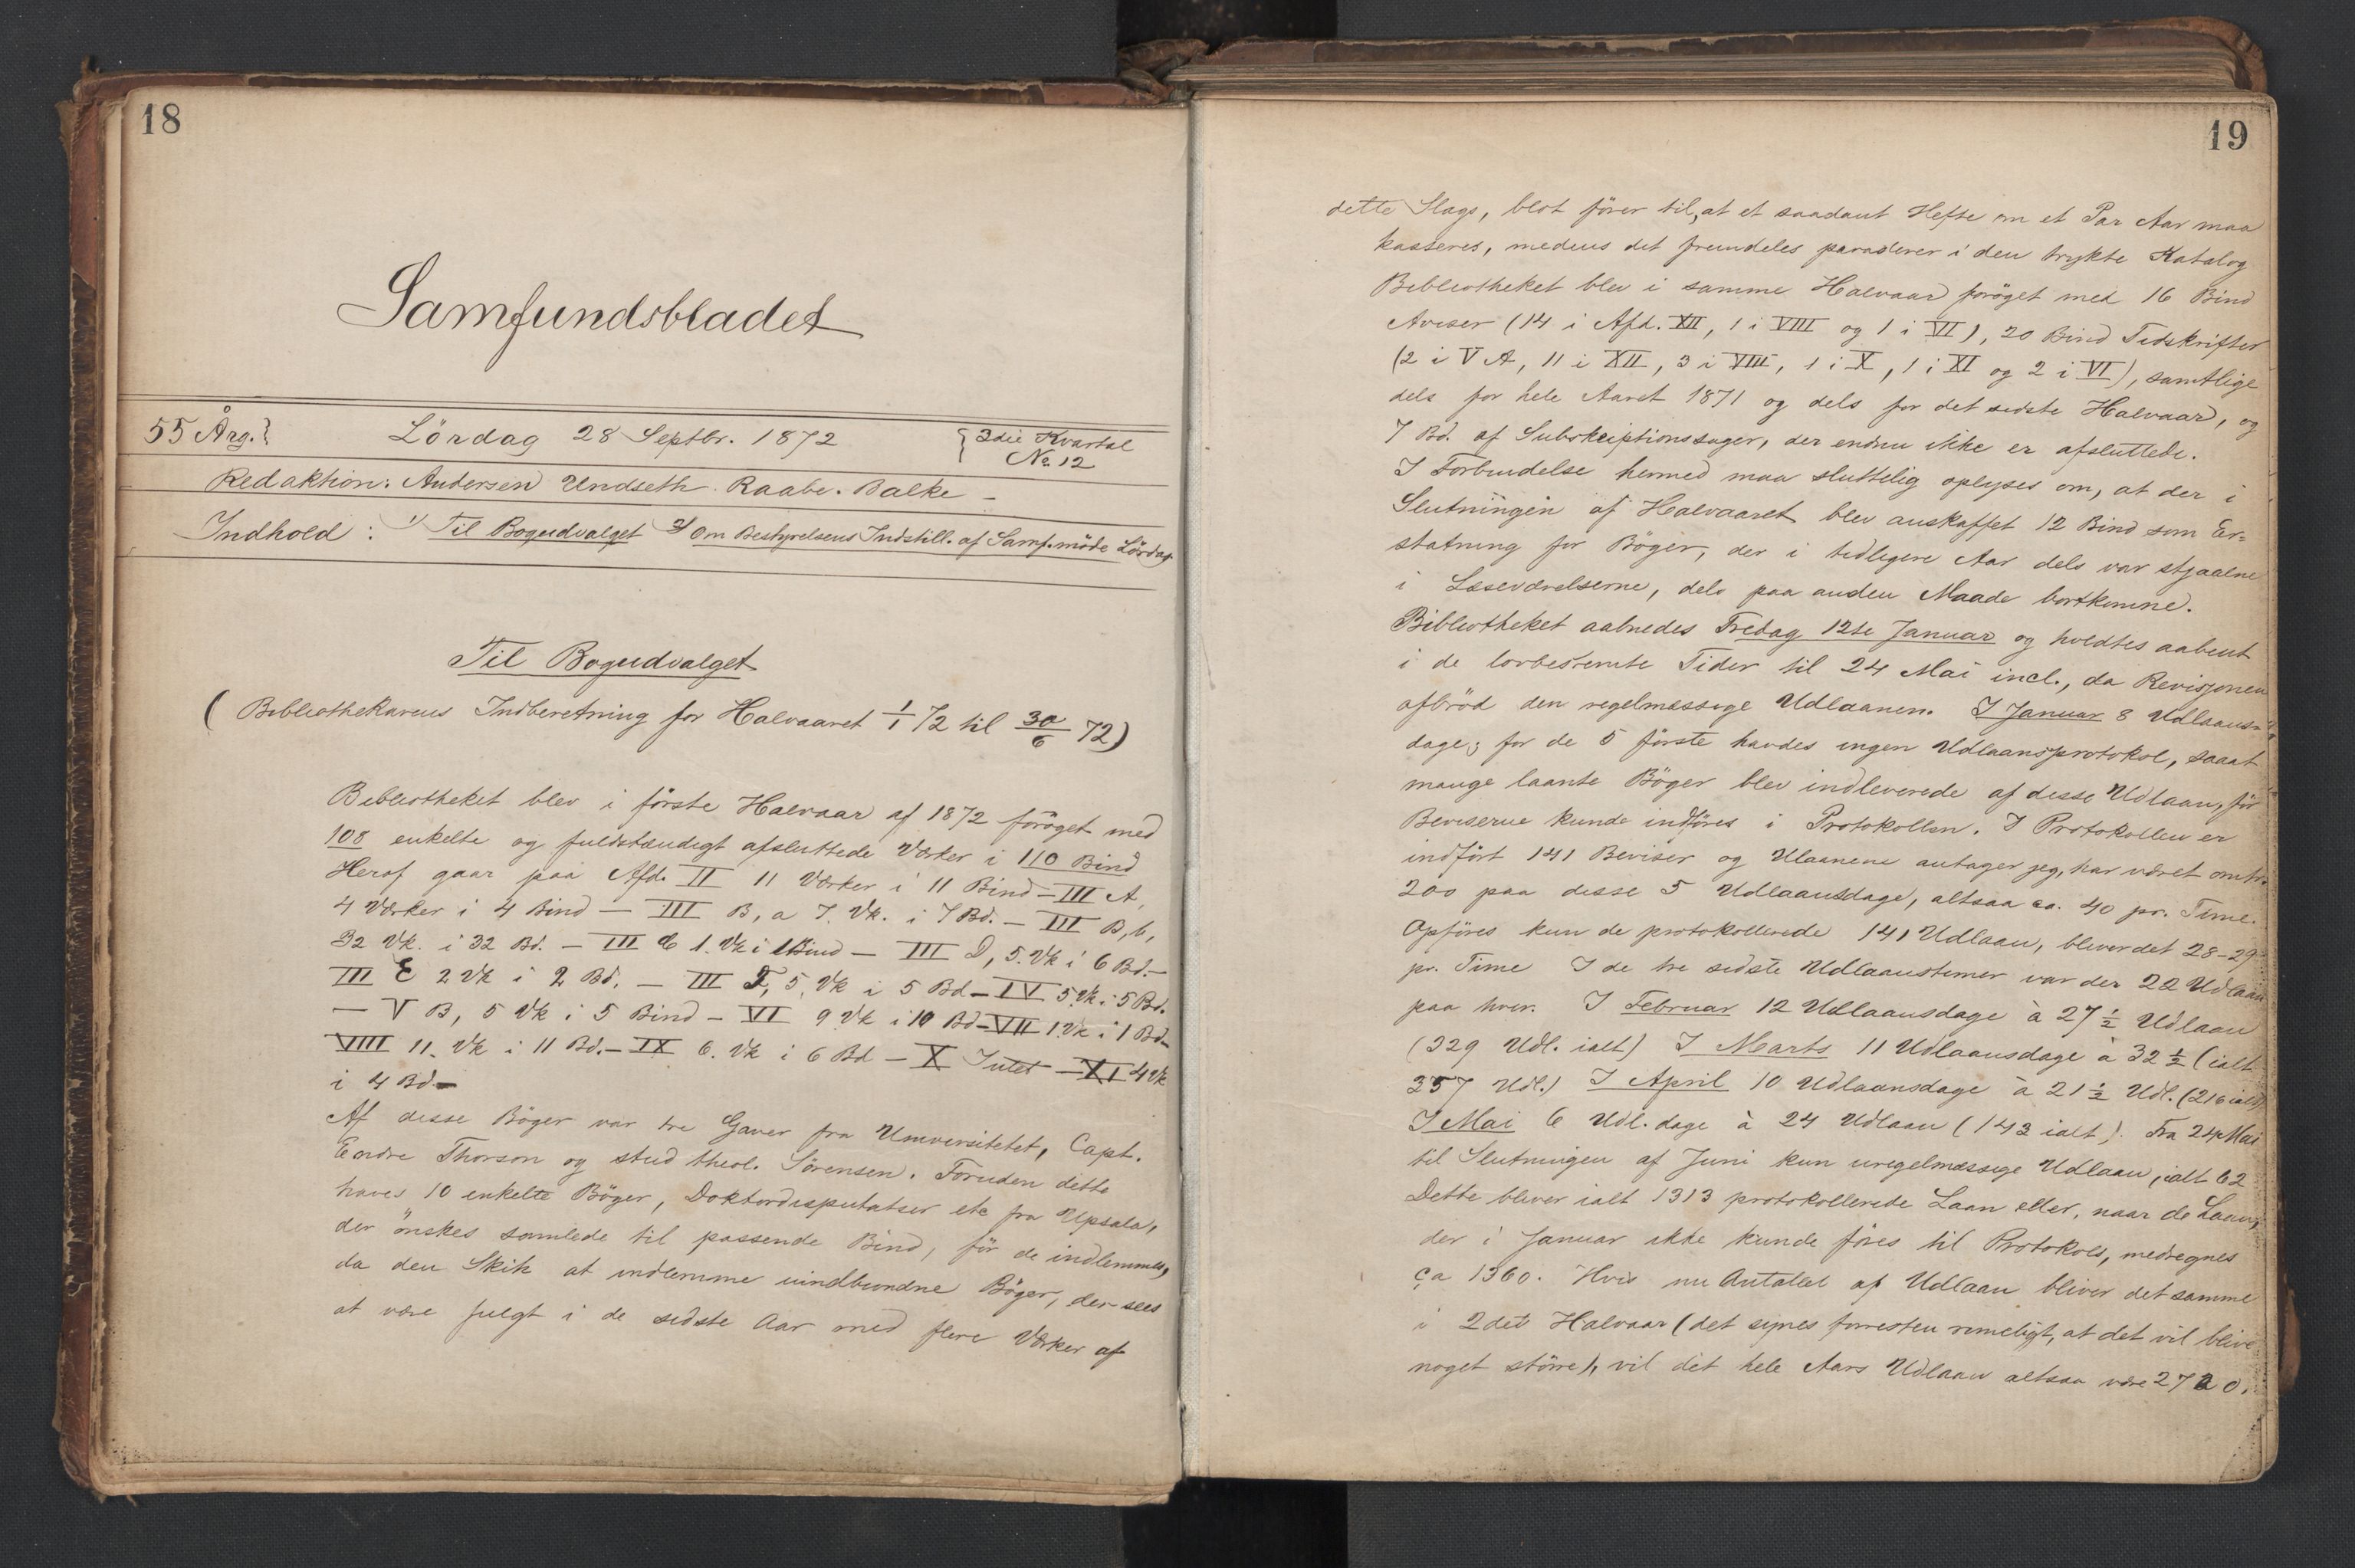 18
Samfundsbladet
55 Årg.} Lördag 28 Septbr. 1872 {3die Kvartal
No. 12
Redaktion: Andersen Undseth. Raabe. Balke –
Indhold: 1) Til Bogudvalget 2) Om Bestyrelsens Indstill. af Samf.möde Lördag
Til Bogudvalget
(Bibliothekarens Indberetning for Halvaaret 1/1 72 til 30/6 72)
Bibliotheket blev i förste Halvaar af 1872 foröget med
108 enkelte og fuldstændigt afsluttede Værker i 110 Bind
Heraf gaar paa Afd. II 11 Værker i 11 Bind – III A,
4 Værker i 4 Bind – III B, a 7. Vk. i 7 Bd. – III B, b,
32 Vk. i 32 Bd. – III C 1. Vk i 1 Bind – III D, 5. Vk i 6 Bd. –
III E 2 Vk i 2 Bd. – III F, 5. Vk i 5 Bd – IV 5. Vk. i 5 Bd.
– V B, 5 Vk i 5 Bind – VI 9 Vk i 10 Bd – VII 1. Vk. i 1 Bd –
VIII 11. Vk i 11 Bd. – IX 6. Vk i 6 Bd – X Intet – XI 4 Vk
i 4 Bd –
Af desse Böger var tre Gaver fra Universitetet, Capt.
Endre Thorson og stud theol. Sörensen. Foruden dette
haves 10 enkelte Böger, Doktordisputatser etc fra Upsala,
der önskes samlede til passende Bind, för de indlemmes,
da den Skik at indlemme uindbundne Böger, der sees
at være fulgt i de sidste Aar med flere Værker af
19
dette Slags, blot förer til, at et saadant Hefte om et Par Aar maa
kasseres, medens det fremdeles paraderer i den trykte Katalog
Bibliotheket blev i samme Halvaar foröget med 16 Bind
Aviser (14 i Afd. XII, 1 i VIII og 1 i VI), 20 Bind Tidskrifter
(2 i V A, 11 i XII, 3 i VIII, 1 i X, 1 i XI og 2 i VI), samtlige
dels for hele Aaret 1871 og dels for det sidste Halvaar, og
7 Bd. af Subskriptionssager, der endnu ikke er afsluttede.
I Forbindelse hermed maa sluttelig oplyses om, at der i
Slutningen af Halvaaret blev anskaffet 12 Bind som Er=
statning for Böger, der i tidligere Aar dels var stjaalne
i Læseværelserne, dels paa anden Maade bortkomne.
Bibliotheket aabnedes Fredag 12te Januar og holdtes aabent
i de lovbestemte Tider til 24 Mai incl., da Revisjonen
afbröd den regelmæssige Udlaanen. I Januar 8 Udlaans=
dage; for de 5 förste havdes ingen Udlaansprotokol, saaat
mange laante Böger blev indleverede af desse Udlaan, för
Beviserne kunde indföres i Protokollen. I Protokollen er
indfört 141 Beviser og Ulaanene antager jeg, har været omtr.
200 paa disse 5 Udlaansdage, altsaa ca. 40 pr. Time.
Opföres kun de protokollerede 141 Udlaan, bliver det 28–29
pr. Time I de tre sidste Udlaanstimer var der 22 Udlaan
paa hver. I Februar 12 Udlaansdage à 27 1/2 Udlaan
(329 Udl. ialt) I Marts 11 Udlaansdage à 32 1/2 (ialt
357 Udl.) I April 10 Udlaansdage à 21 1/2 Udl. (216 ialt)
I Mai 6 Udl. dage à 24 Udlaan (143 ialt). Fra 24 Mai
til Slutningen af Juni kun uregelmæssige Udlaan, ialt 62
Dette bliver ialt 1313 protokollerede Laan eller, naar de Laan,
der i Januar ikke kunde föres til Protokols, medregnes
ca 1360. Hvis nu Antallet af Udlaan bliver det samme
i 2det Halvaar (det synes forresten rimeligt, at det vil blive
noget större), vil det hele Aars Udlaan altsaa være 2720.